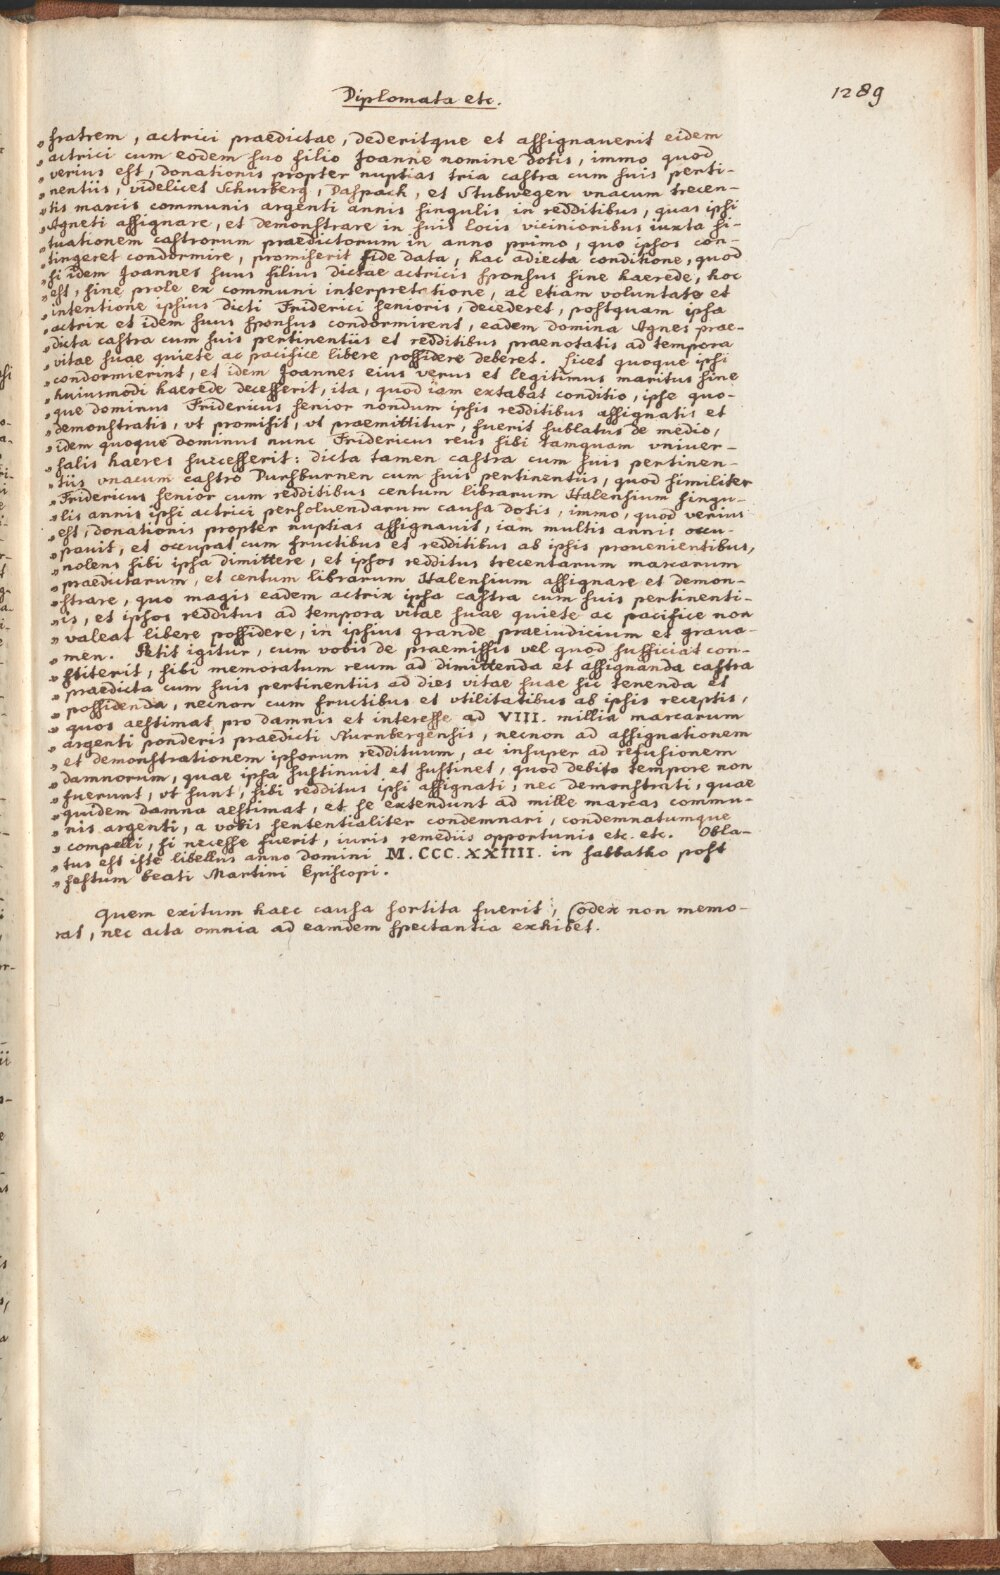 Diplomata etc.
1289
„ fratrem, actrici praedictae, dederitque et assignauerit eidem
„ actrici cum eodem suo filio Joanne nomine dotis, immo quod
„ verius est, donationis propter nuptias tria castra cum suis perti-
„ nentiis, videlicet Schurberg, Daspach, et Stubwegen vnacum trecen-
„ tis marcis communis argenti annis singulis in redditibus, quas ipsi
„ Agneti assignare, et demonstrare in suis locis vicinioribus iuxta si-
„ tuationem castrorum praedictorum in anno primo, quo ipsos con-
„ tingeret condormire, promiserit fide data, hac adiecta conditione, quod
„ si idem Joannes suus filius dictae actricis sponsus sine haerede, hoc
„ est, sine prole ex communi interpretatione, ac etiam voluntate et
„ intentione ipsius dicti Friderici senioris, decederet, postquam ipsa
„ actrix et idem suus sponsus condormirent, eadem domina Agnes prae-
„ dicta castra cum suis pertinentiis et redditibus praenotatis ad tempora
„ vitae suae quiete ac pacifice libere possidere deberet. Licet quoque ipsi
„ condormierint, et idem Joannes eius verus et legitimus maritus sine
„ huiusmodi haerede decesserit, ita, quod iam extabat conditio, ipse quo-
„ que dominus Fridericus senior nondum ipsis redditibus assignatis et
„ demonstratis, vt promisit, vt praemittitur, fuerit sublatus de medio,
„ idem quoque dominus nunc Fridericus reus sibi tamquam vniuer-
„ salis haeres successerit: dicta tamen castra cum suis pertinen-
„ tiis vnacum castro Dursburnen cum suis pertinentiis, quod similiter
„ Fridericus senior cum redditibus centum librarum Halensium singu-
„ lis annis ipsi actrici persoluendarum causa dotis, immo, quod verius
„ est, donationis propter nuptias assignauit, iam multis annis occu-
„ pauit, et occupat cum fructibus et redditibus ab ipsis prouenientibus,
„ nolens sibi ipsa dimittere, et ipsos redditus trecentarum marcarum
„ praedictarum, et centum librarum Halensium assignare et demon-
„ strare, quo magis eadem actrix ipsa castra cum suis pertinenti-
„ is, et ipsos redditus ad tempora vitae suae quiete ac pacifice non
„ valeat libere possidere, in ipsius grande praeiudicium et graua-
„ men. Petit igitur, cum vobis de praemissis vel quod sufficiat con-
„ stiterit, sibi memoratum reum ad dimittenda et assignanda castra
„ praedicta cum suis pertinentiis ad dies vitae suae sic tenenda et
„ possidenda, necnon cum fructibus et vtilitatibus ab ipsis receptis,
„ quos aestimat pro damnis et interesse ad VIII. millia marcarum
„ argenti ponderis praedicti Nurnbergensis, necnon ad assignationem
„ et demonstrationem ipsorum reddituum, ac insuper ad refusionem
„ damnorum, quae ipsa sustinuit et sustinet, quod debito tempore non
„ fuerunt, vt sunt, sibi redditus ipsi assignati, nec demonstrati, quae
„ quidem damna aestimat, et se extendunt ad mille marcas commu-
„ nis argenti, a vobis sententialiter condemnari, condemnatumque
„ compelli, si necesse fuerit, iuris remediis opportunis etc. etc. Obla-
„ tus est iste libellus anno domini M. CCC. XXIIII. in sabbatho post
„ festum beati Martini Episcopi.
Quem exitum haec causa sortita fuerit, Codex non memo-
rat, nec acta omnia ad eamdem spectantia exhibet.